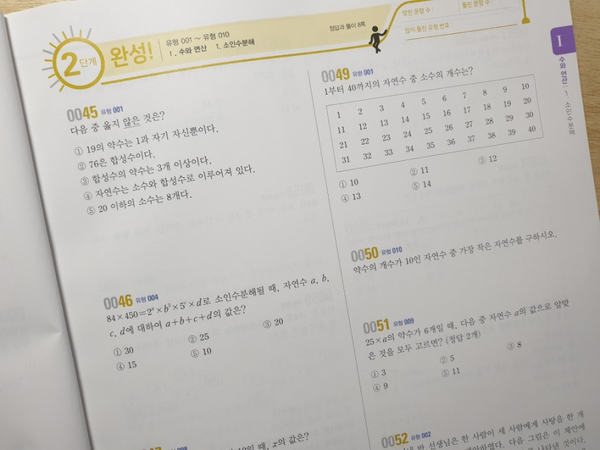 2단계 완성!
유형 001 ~ 유형 010
Ⅰ. 수와 연산 1. 소인수분해
정답과 풀이 8쪽
맞힌 문항 수 :
틀린 문항 수 :
많이 틀린 유형 번호 :
Ⅰ
수와 연산
1. 소인수분해
0045 유형 001
다음 중 옳지 않은 것은?
① 19의 약수는 1과 자기 자신뿐이다.
② 76은 합성수이다.
③ 합성수의 약수는 3개 이상이다.
④ 자연수는 소수와 합성수로 이루어져 있다.
⑤ 20 이하의 소수는 8개다.
0046 유형 004
84×450=2ᵃ×b³×5ᶜ×d로 소인수분해될 때, 자연수 a, b,
c, d에 대하여 a+b+c+d의 값은?
① 30 ② 25 ③ 20
④ 15 ⑤ 10
일 때, x의 값은?
0049 유형 001
1부터 40까지의 자연수 중 소수의 개수는?
1 2 3 4 5 6 7 8 9 10
11 12 13 14 15 16 17 18 19 20
21 22 23 24 25 26 27 28 29 30
31 32 33 34 35 36 37 38 39 40
① 10 ② 11 ③ 12
④ 13 ⑤ 14
0050 유형 010
약수의 개수가 10인 자연수 중 가장 작은 자연수를 구하시오.
0051 유형 009
25×a의 약수가 6개일 때, 다음 중 자연수 a의 값으로 알맞
은 것을 모두 고르면? (정답 2개)
① 3 ② 5 ③ 8
④ 9 ⑤ 11
0052 유형 002
선생님은 한 사람이 세 사람에게 사탕을 한 개
다음 그림은 이 제안에
나타낸 것이다.